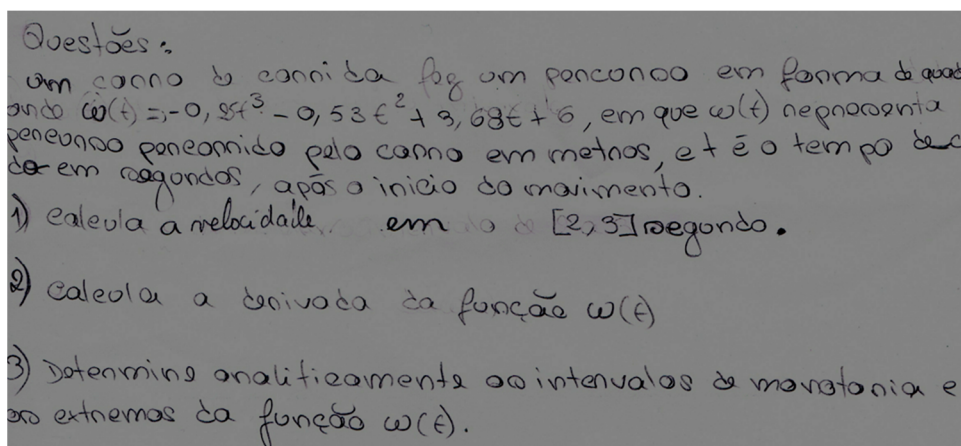 Questões:
um carro de corrida fez um percurso em forma de quad
ando w(t) = -0, 8t³ - 0, 53t² + 3, 68t + 6, em que w(t) representa
percurso percorrido pelo carro em metros, e t é o tempo
em segundos, após o inicio do movimento.
1) calcula a velocidade em [2,3] segundo.
2) calcula a derivada da função w(t)
3) Determine analiticamente os intervalos de monotonia e
os extremos da função w(t).